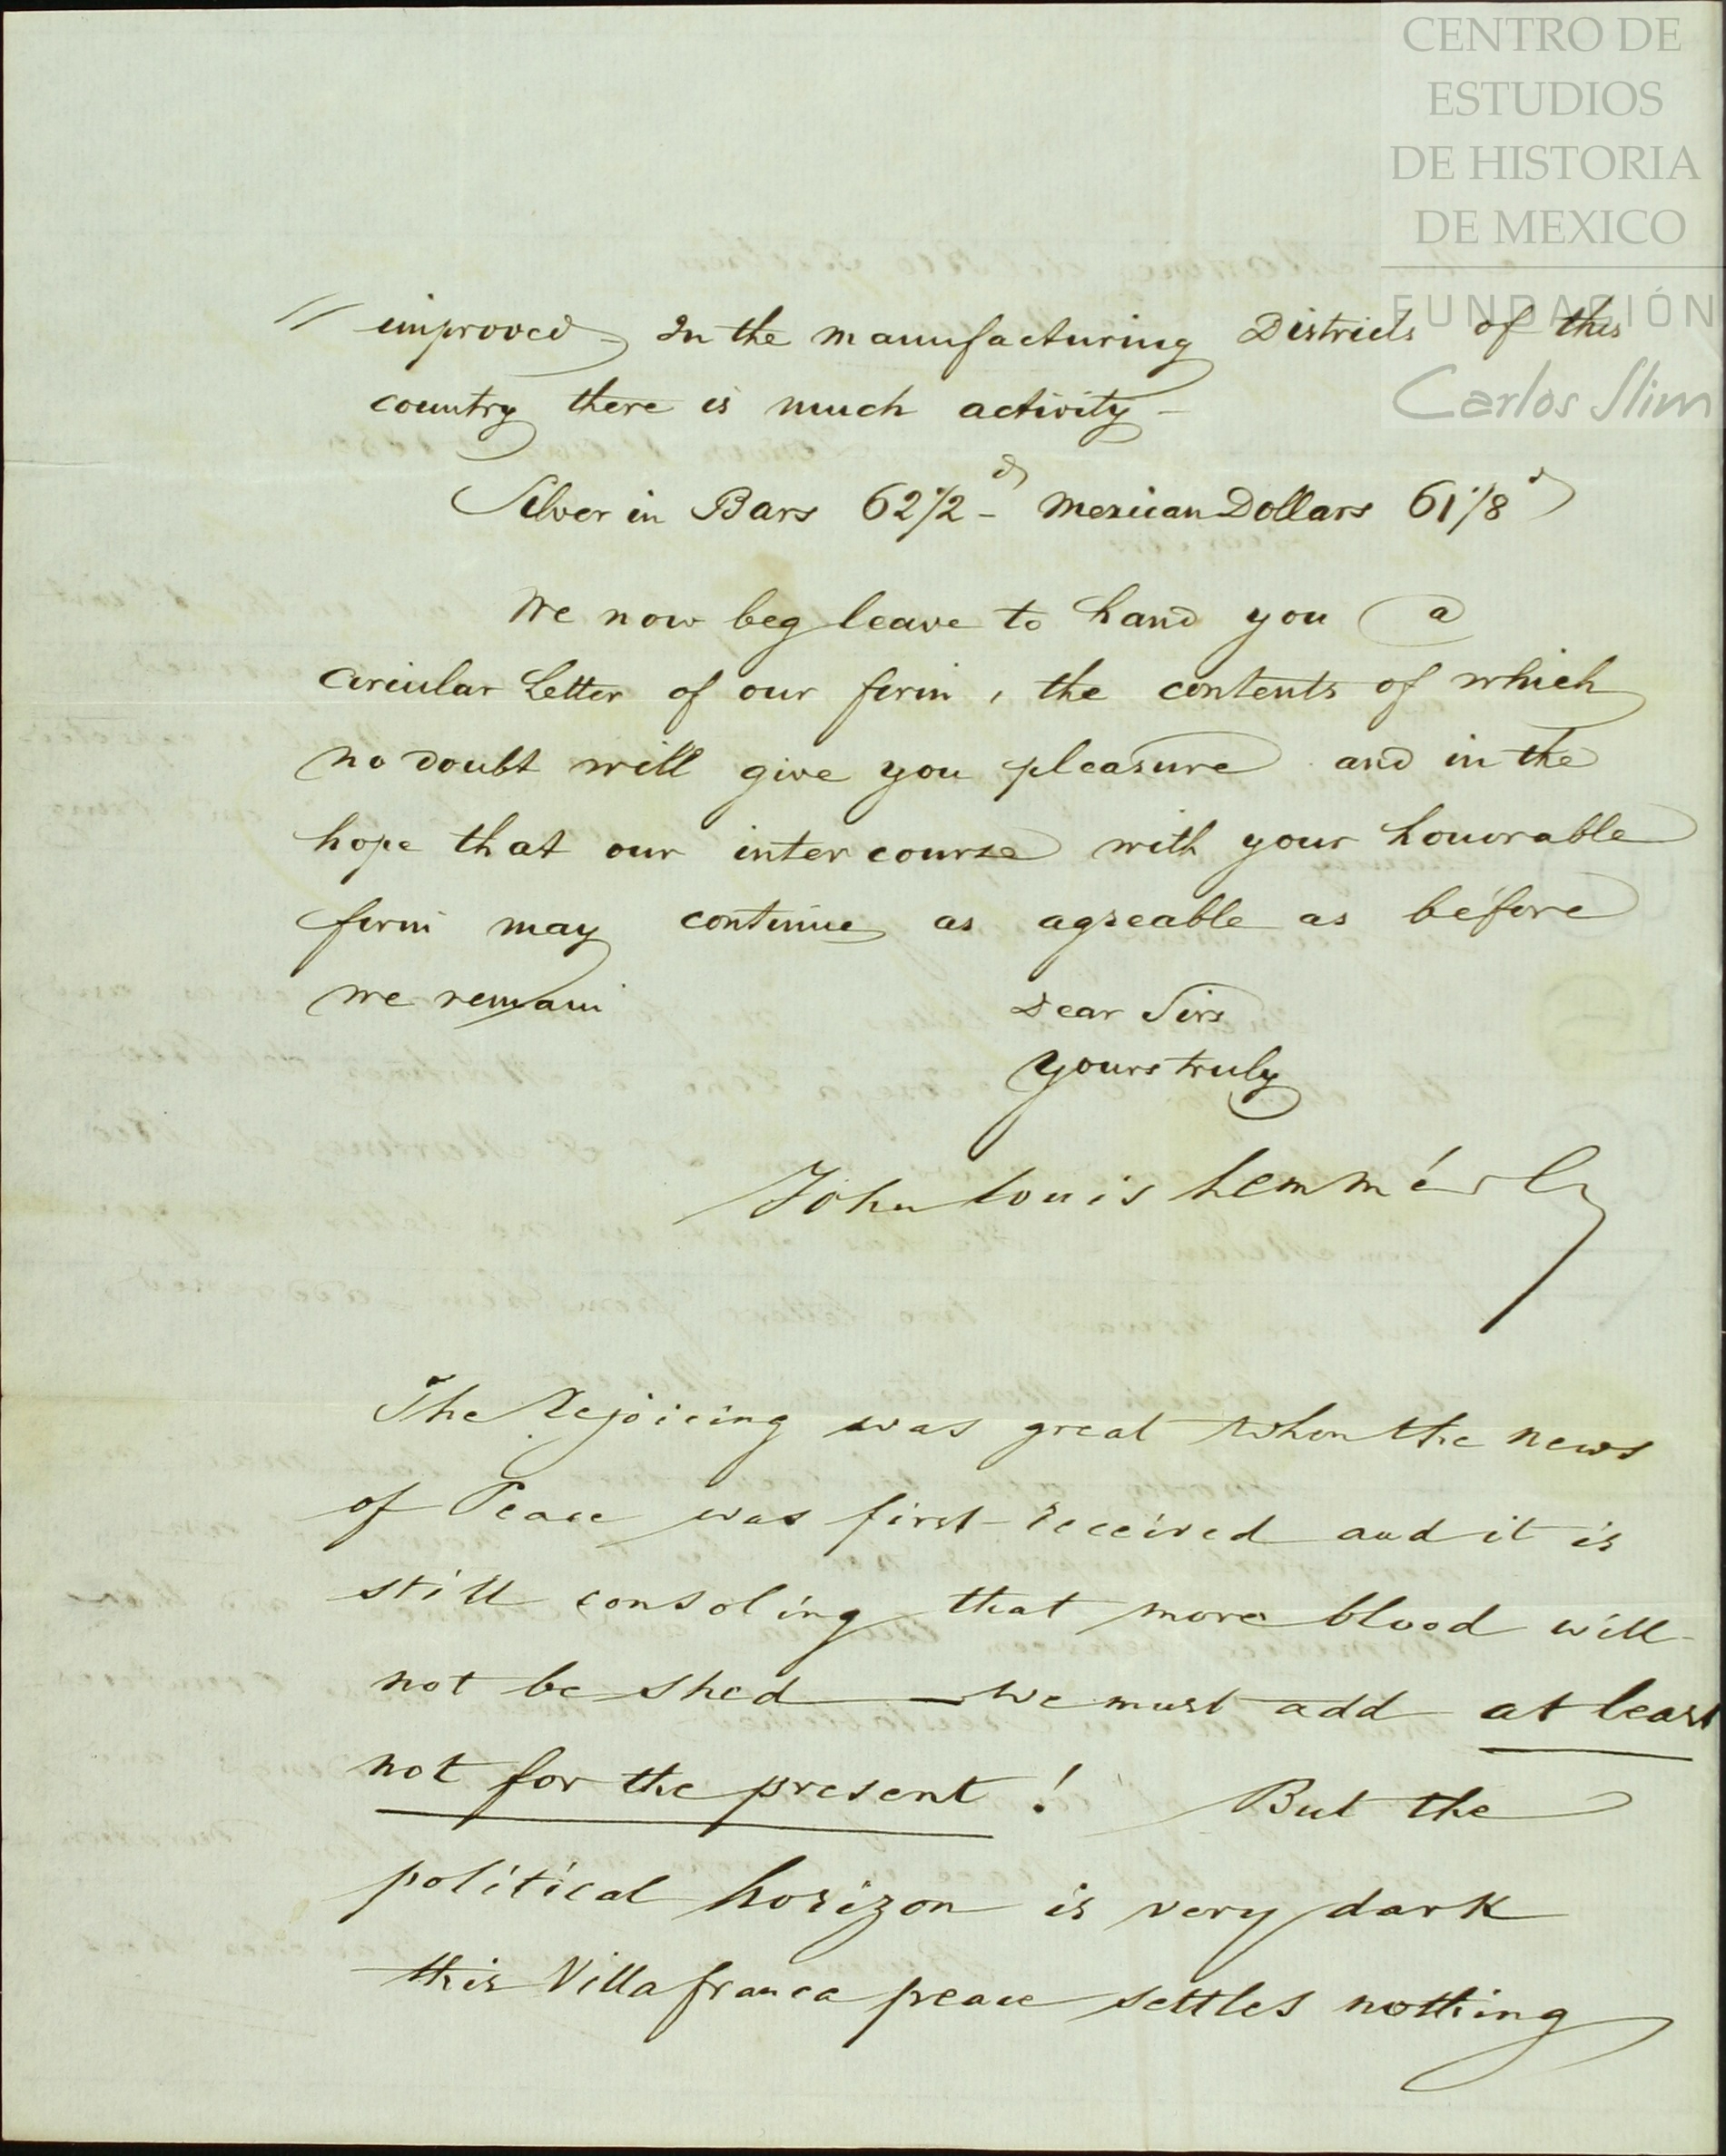 CENTRO DE
ESTUDIOS
DE HISTORIA
DE MEXICO
FUNDACIÓN
Carlos Slim
// improved – In the manufacturing Districts of this
country there is much activity –
Silver in Bars 62 1/2 d – Mexican Dollars 61 1/8 d
We now beg leave to hand you a
circular Letter of our firm, the contents of which
no doubt will give you pleasure and in the
hope that our intercourse with your honorable
firm may continue as agreable as before
we remain Dear Sirs
yours truly
John Louis Lemmé
The Rejoicing was great when the news
of Peace was first received and it is
still consoling that more blood will
not be shed — we must add at least
not for the present! But the
political horizon is very dark
this Villafranca peace settles nothing